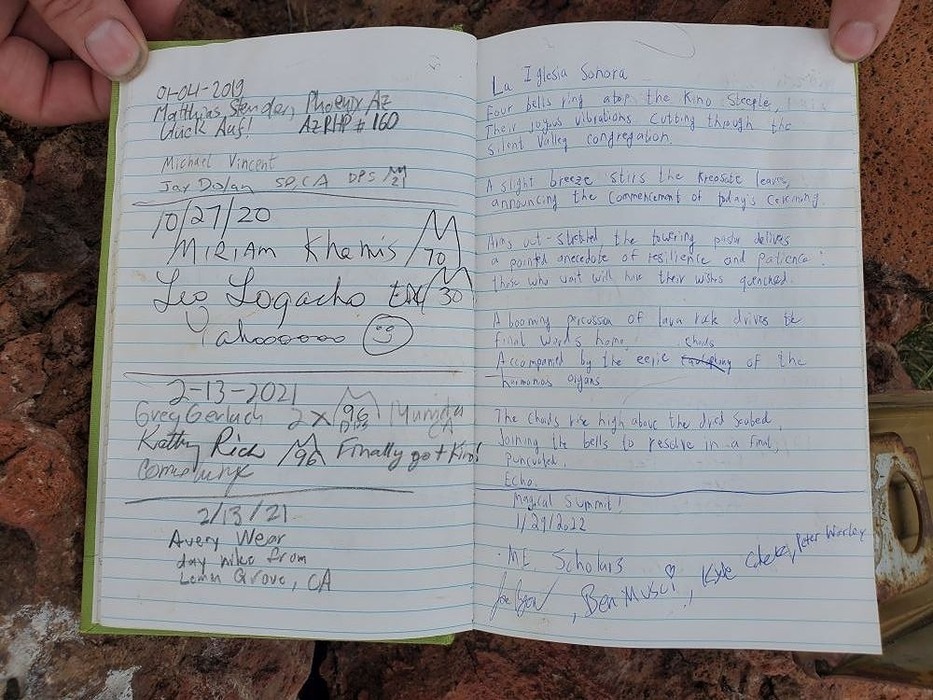 01-04-2019
Matthias Stender, Phoenix, Az
Gluck Auf! AZRHP # 160
Michael Vincent
Jay Dolan SD, CA DPS M 21
10/27/20
MIRIAM Khamis M 70
Leo Logacho M 30
Yahoooooo
2-13-2021
Greg Gerlach 2X 96 DPS Murrieta CA
Kathy Rich 96 Finally got Kino!
2/13/21
Avery Wear
day hike from
Lemon Grove, CA
La Iglesia Sonora
Four bells ring atop the Kino Steeple,
Their joyous vibrations cutting through the
silent Valley congregation.
A slight breeze stirs the kreosote leaves,
announcing the commencement of today's ceremony.
Arms out-stretched the towering pastor delivers
a pointed anecdote of resilience and patience:
those who wait will have their wishes quenched.
A booming percussion of lava rock drives the
final words home.
Accompanied by the eerie chords of the
harmonious organs
The Chords rise high above the dried seabed,
Joining the bells to resolve in a final,
puncuated,
Echo.
Magical Summit!
1/29/2022
- M.E. Scholars
, Ben Musci, Kyle , Peter Worley